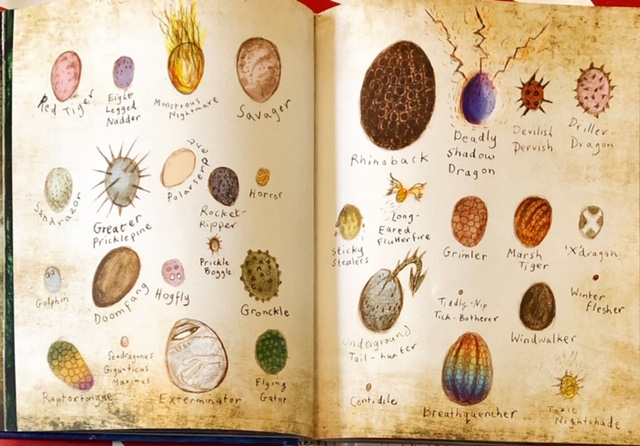 Red Tiger
Eight
Legged
Nadder
Monstrous
Nightmare
Savager
Sandrazor
Greater
Pricklepine
Polarserpent
Rocket-
Ripper
Horror
Golphin
Doomfang
Hogfly
Prickle
Boggle
Gronckle
Raptortongue
Seadragonus
Giganticus
Maximus
Exterminator
Flying
Gator
Rhinoback
Deadly
Shadow
Dragon
Devilish
Dervish
Driller-
Dragon
Sticky
Stealers
Long-
Eared
Flutterfire
Grimler
Marsh
Tiger
'X'dragon
Underground
Tail-hunter
Tiddly-Nip
Tick-Botherer
Windwalker
Winter
Flesher
Centidile
Breathquencher
Toxic
Nightshade